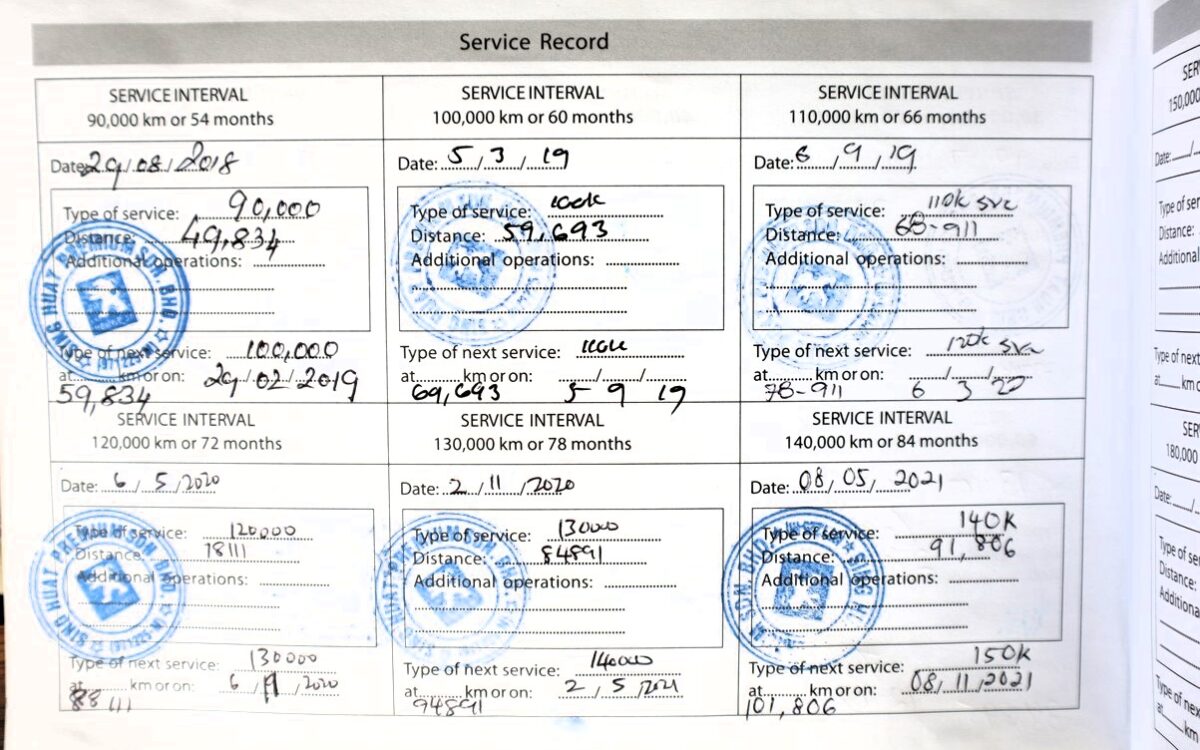 Service Record
SERVICE INTERVAL
90,000 km or 54 months
Date: 29/08/2018
Type of service: 90,000
Distance: 49,834
Additional operations:
Type of next service: 100,000
at km or on: 29/02/2019
59,834
SERVICE INTERVAL
100,000 km or 60 months
Date: 5/3/19
Type of service: 100k
Distance: 59,693
Additional operations:
Type of next service: 110k
at km or on:
69,693 5-9 19
SERVICE INTERVAL
110,000 km or 66 months
Date: 6/9/19
Type of service: 110k svc
Distance: 68-911
Additional operations:
Type of next service: 120k svc
at km or on:
78-911 6 3 20
SERVICE INTERVAL
120,000 km or 72 months
Date: 6/5/2020
Type of service: 120000
Distance: 78111
Additional operations:
Type of next service: 130000
at km or on: 6/11/2020
88111
SERVICE INTERVAL
130,000 km or 78 months
Date: 2/11/2020
Type of service: 13000
Distance: 84891
Additional operations:
Type of next service: 14000
at km or on: 2/5/2021
94891
SERVICE INTERVAL
140,000 km or 84 months
Date: 08/05/2021
Type of service: 140K
Distance: 91,806
Additional operations:
Type of next service: 150K
at km or on: 08/11/2021
101,806
150,000
Date:
Distance:
Additional
Type of next
at km
180,000
Date:
Distance:
at km